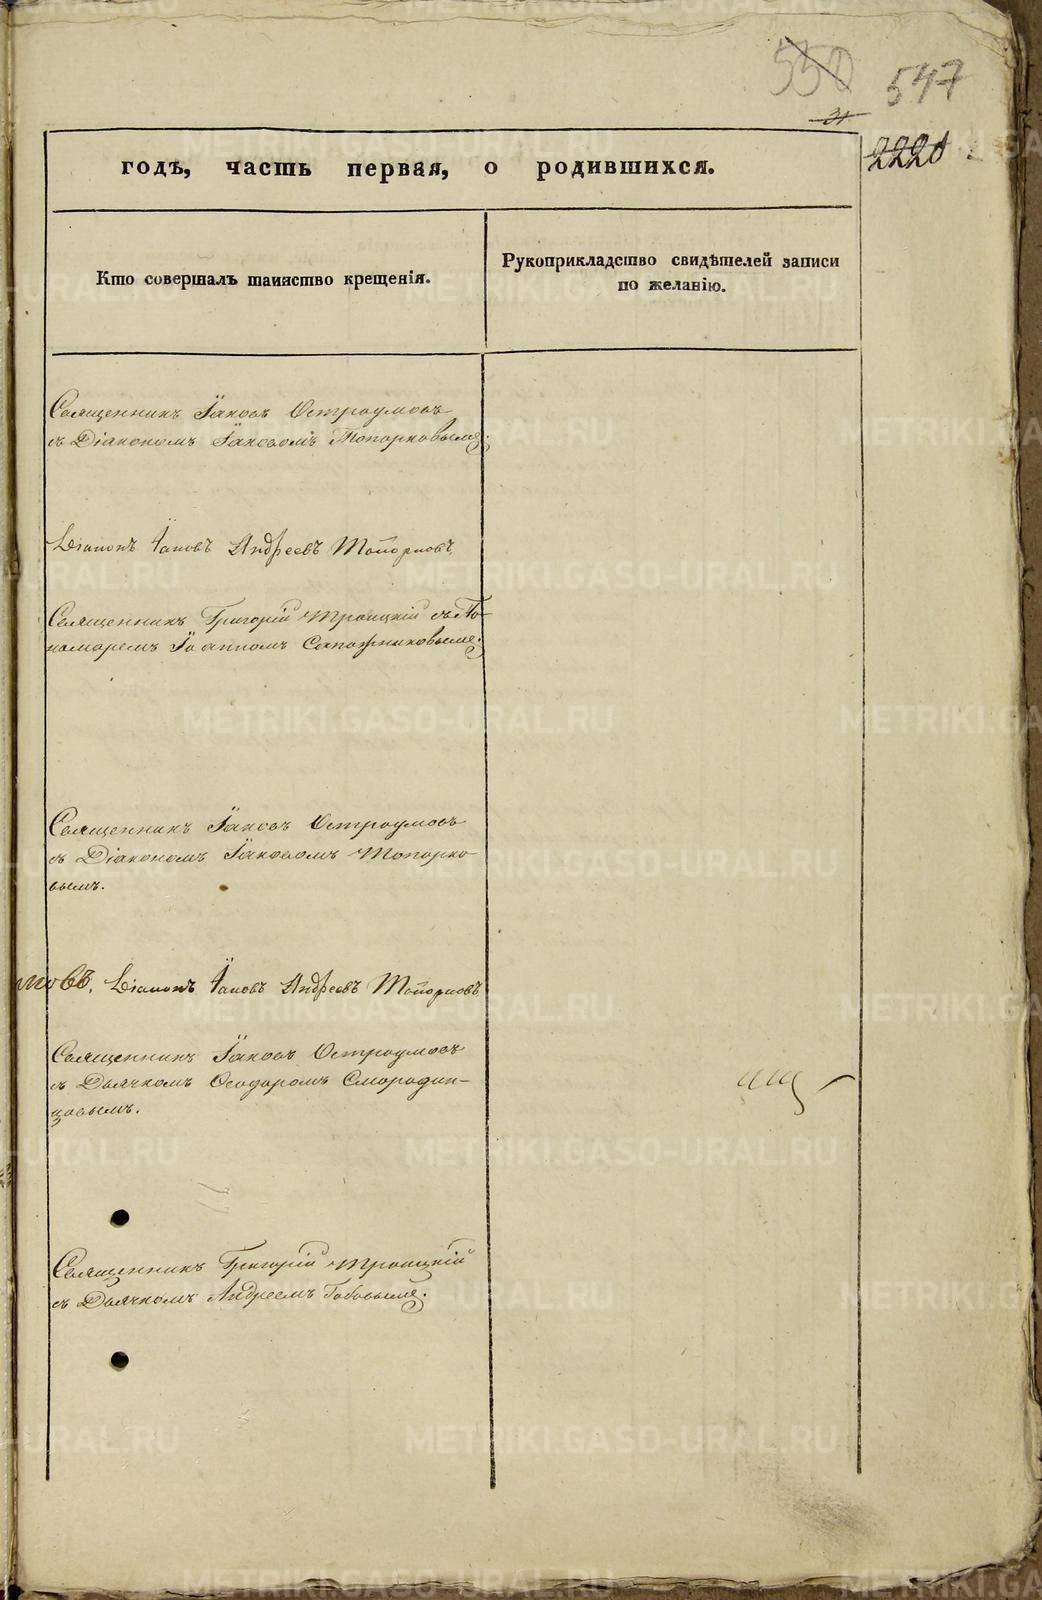 550 547
31
2220
годъ, часть первая, о родившихся.
Кто совершалъ таинство крещенія.
Рукоприкладство свидѣтелей записи
по желанію.
Священникъ Іаковъ Остроумовъ
съ Діакономъ Іаковомъ Топорковымъ.
Діаконъ Іаковъ Андреевъ Топорковъ
Священникъ Григорій Троицкій съ По-
номаремъ Іоанномъ Сапожниковымъ.
Священникъ Іаковъ Остроумовъ
съ Діакономъ Іаковомъ Топорко-
вымъ.
Діаконъ Іаковъ Андреевъ Топорковъ
Священникъ Іаковъ Остроумовъ
съ Дьячкомъ Ѳеодоромъ Смородин-
цовымъ.
Священникъ Григорій Троицкій
съ Дьячкомъ Андреемъ Бабовымъ.
METRIKI.GASO-URAL.RU